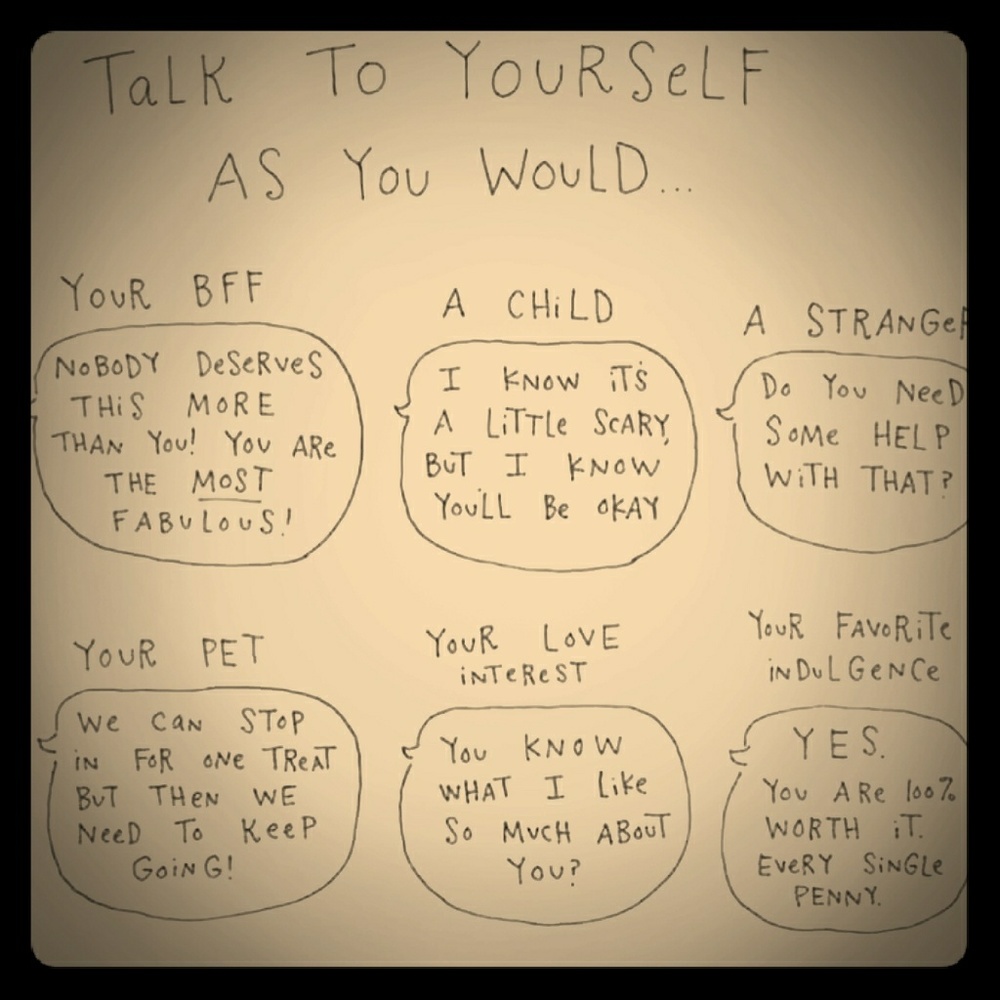 TaLK To YouRSeLF
AS You WouLD...
YouR BFF
NoBoDY DeSeRVeS
THiS MoRE
THAN You! You ARe
THE MoST
FABuLouS!
A CHiLD
I KNoW iT'S
A LiTTLe ScARY,
BuT I KNoW
You'LL Be oKAY
A STRANGeR
Do You NeeD
SoMe HELP
WiTH THAT?
YouR PET
We CaN SToP
iN FoR oNe TReAT
BuT THeN WE
NeeD To KeeP
GoiNG!
YouR LoVE
iNTeReST
You KNoW
WHAT I LiKe
So MucH ABouT
You?
YouR FAVoRiTe
iNDuLGeNCe
YES.
You ARe 100%
WoRTH iT.
EVeRY SiNGLe
PENNY.